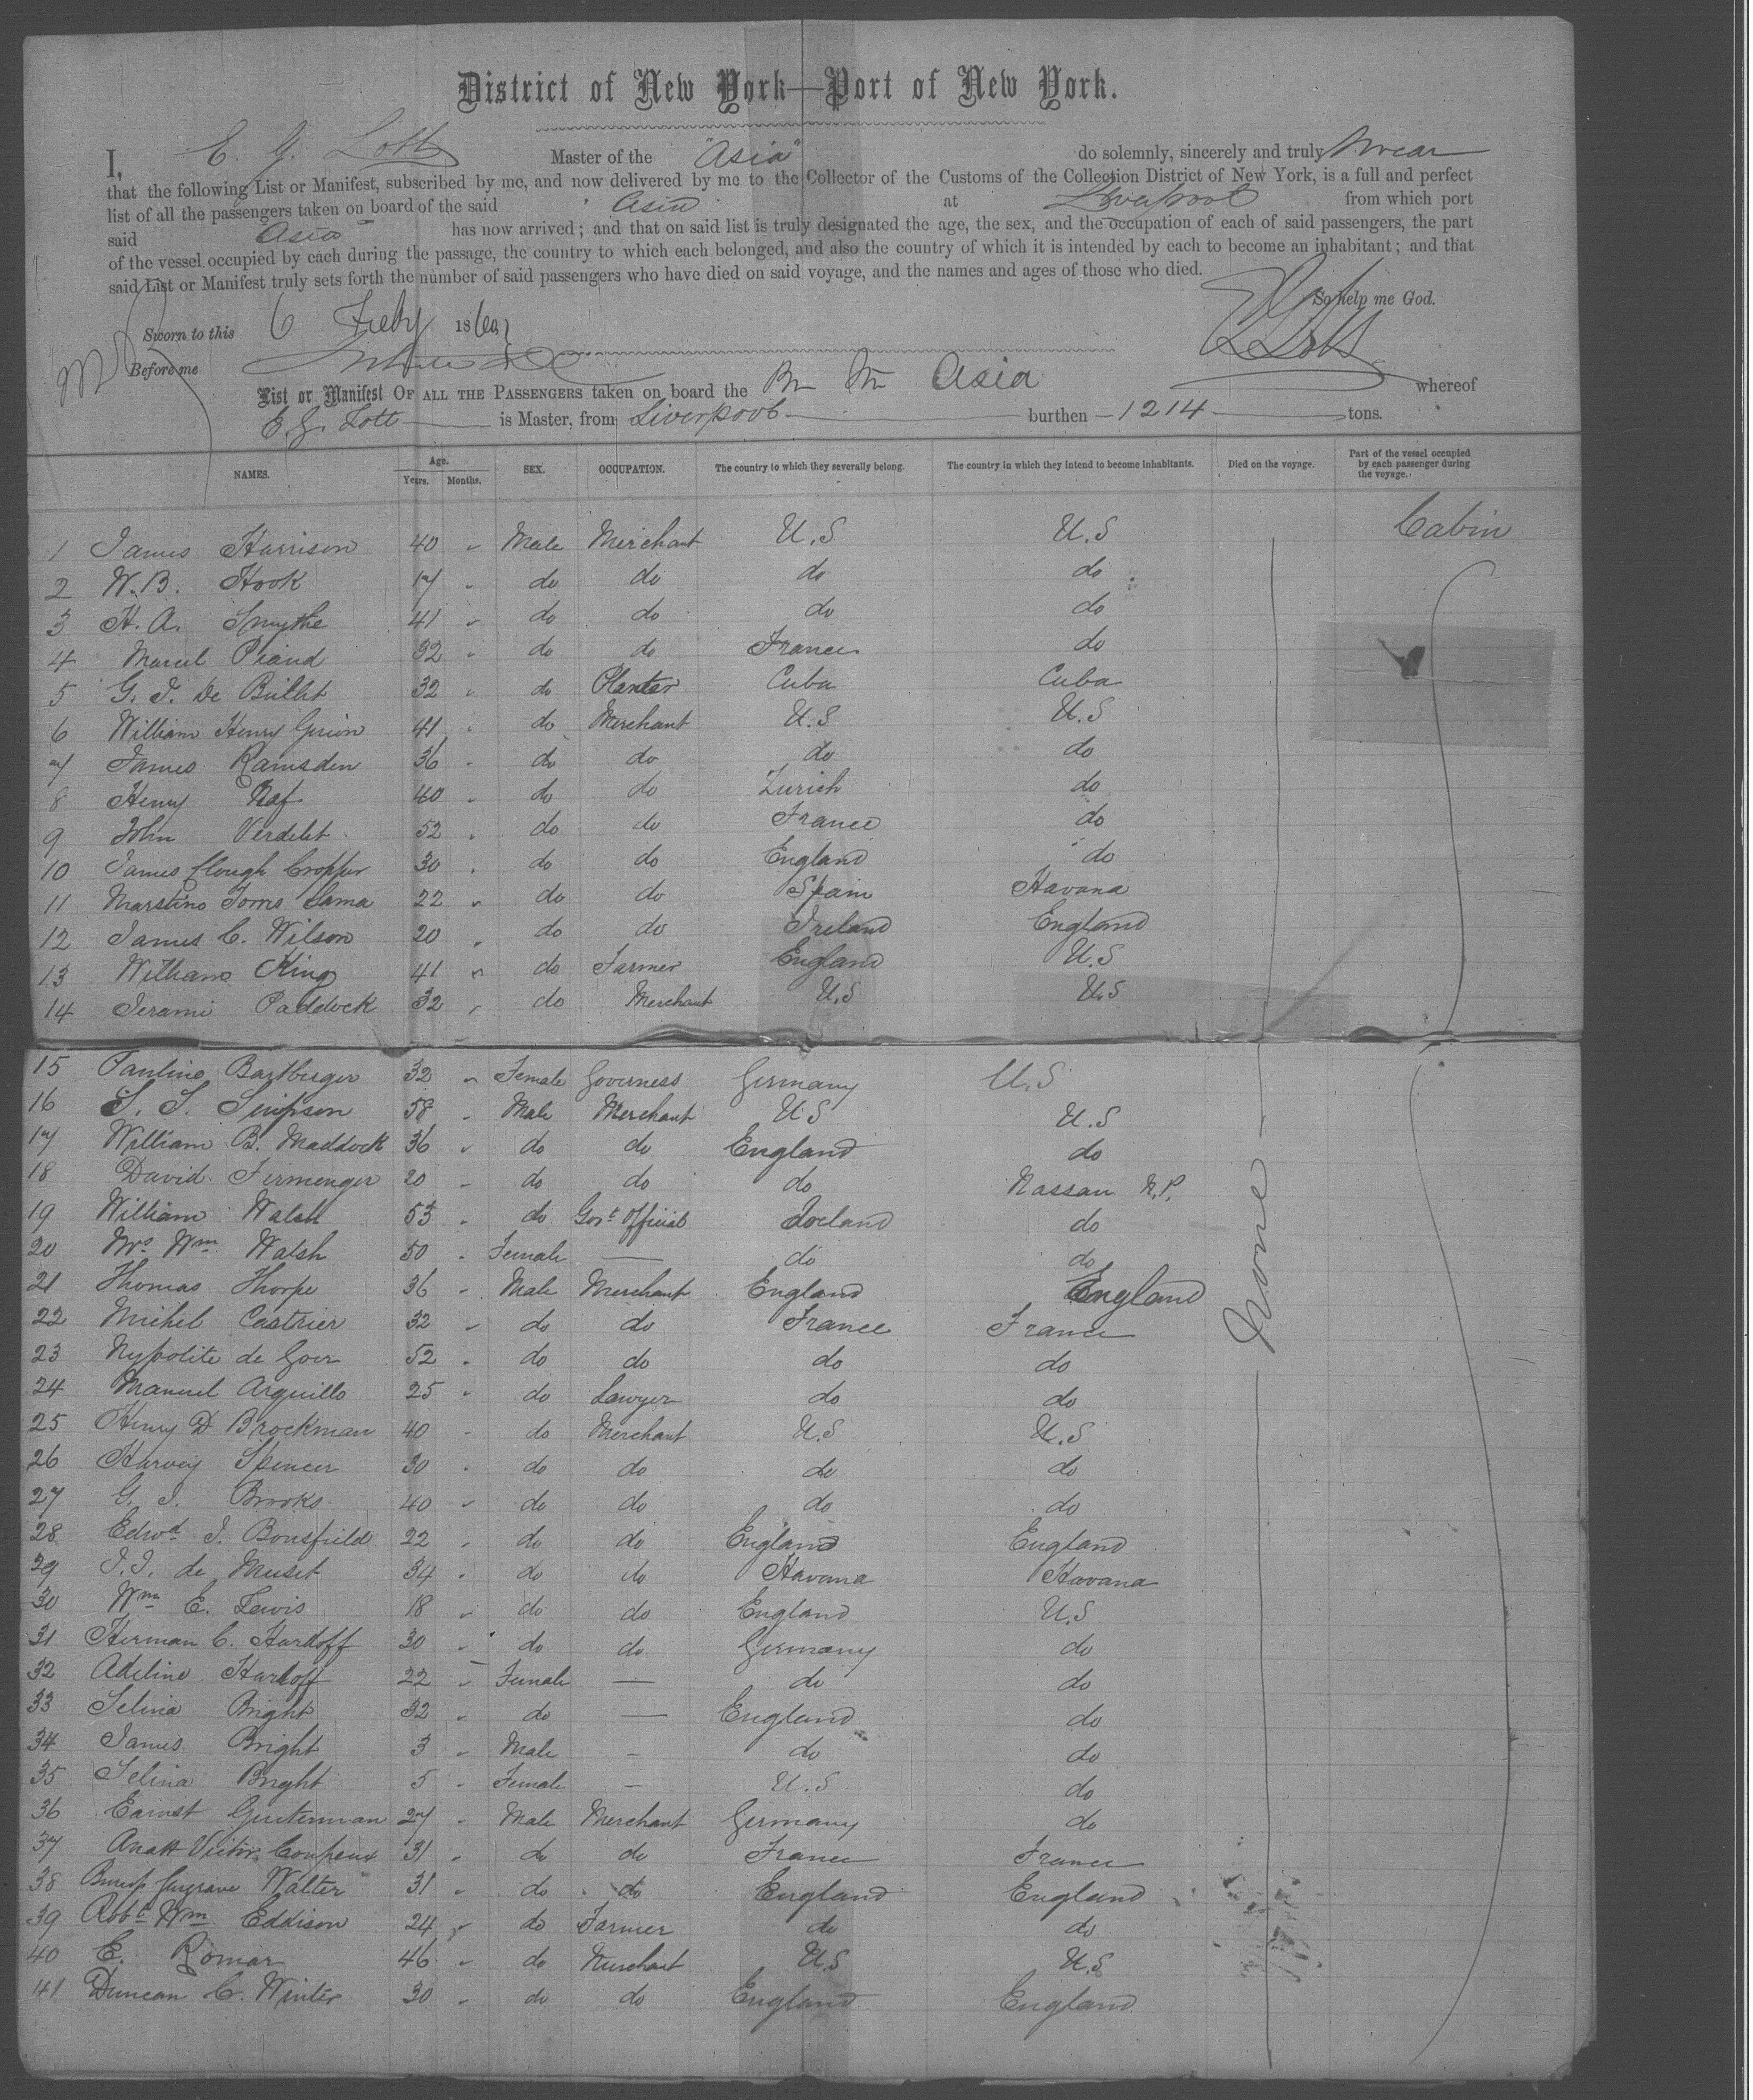 District of New York—Port of New York.
I, E. G. Lott Master of the "Asia" do solemnly, sincerely and truly swear
that the following List or Manifest, subscribed by me, and now delivered by me to the Collector of the Customs of the Collection District of New York, is a full and perfect
list of all the passengers taken on board of the said Asia at Liverpool from which port
said Asia has now arrived; and that on said list is truly designated the age, the sex, and the occupation of each of said passengers, the part
of the vessel occupied by each during the passage, the country to which each belonged, and also the country of which it is intended by each to become an inhabitant; and that
said List or Manifest truly sets forth the number of said passengers who have died on said voyage, and the names and ages of those who died.
So help me God.
Sworn to this 6 Feby 1860
E G Lott
Before me
List or Manifest OF ALL THE PASSENGERS taken on board the Br Str Asia whereof
E. G. Lott is Master, from Liverpool burthen 1214 tons.
NAMES. Age. Years. Months. SEX. OCCUPATION. The country to which they severally belong. The country in which they intend to become inhabitants. Died on the voyage. Part of the vessel occupied by each passenger during the voyage.
1 James Harrison 40 " Male Merchant U.S U.S Cabin
2 W.B. Hook 17 " do do do do
3 H. A. Smythe 41 " do do do do
4 Marcel Piaud 32 " do do France do
5 G. I. De Bullet 32 " do Planter Cuba Cuba
6 William Henry Guion 41 " do Merchant U.S U.S
7 James Ramsden 36 " do do do do
8 Henry Naf 40 " do do Zurich do
9 John Verdelet 52 " do do France do
10 James Clough Cropper 30 " do do England do
11 Torres Lama 22 " do do Spain Havana
12 James C. Wilson 20 " do do Ireland England
13 William King 41 " do Farmer England U.S
14 Paddock 32 " do Merchant U.S U.S
15 Pauline Bartberger 32 " Female Governess Germany U.S
16 S. S. Simpson 58 " Male Merchant U.S U.S
17 William B. Maddock 36 " do do England do
18 David Firmenger 20 " do do do Nassau N.P.
19 William Walsh 53 " do Govt Official Ireland do
20 Mrs Wm Walsh 50 " Female — do do
21 Thomas Thorpe 36 " Male Merchant England England
22 Michel Castrier 32 " do do France France
23 Hypolite de Goer 52 " do do do do
24 Manuel Arguillo 25 " do Lawyer do do
25 Henry D Brockman 40 " do Merchant U.S U.S
26 Harvey Spencer 30 " do do do do
27 G. I. Brooks 40 " do do do do
28 Edwd I. Bousfield 22 " do do England England
29 I. I. de Muset 34 " do do Havana Havana
30 Wm E. Lewis 18 " do do England U.S
31 Herman C. Hardoff 30 " do do Germany do
32 Adeline Hardoff 22 " Female — do do
33 Selina Bright 32 " do — England do
34 James Bright 3 " Male - do do
35 Selina Bright 5 " Female — U.S do
36 Earnst Guterman 27 " Male Merchant Germany do
37 Victor Coupeux 31 " do do France France
38 Walter 31 " do do England England
39 Robt Wm Eddison 24 " do Farmer do do
40 E. Romar 46 " do Merchant U.S U.S
41 Duncan C. Winter 30 " do do England England
None